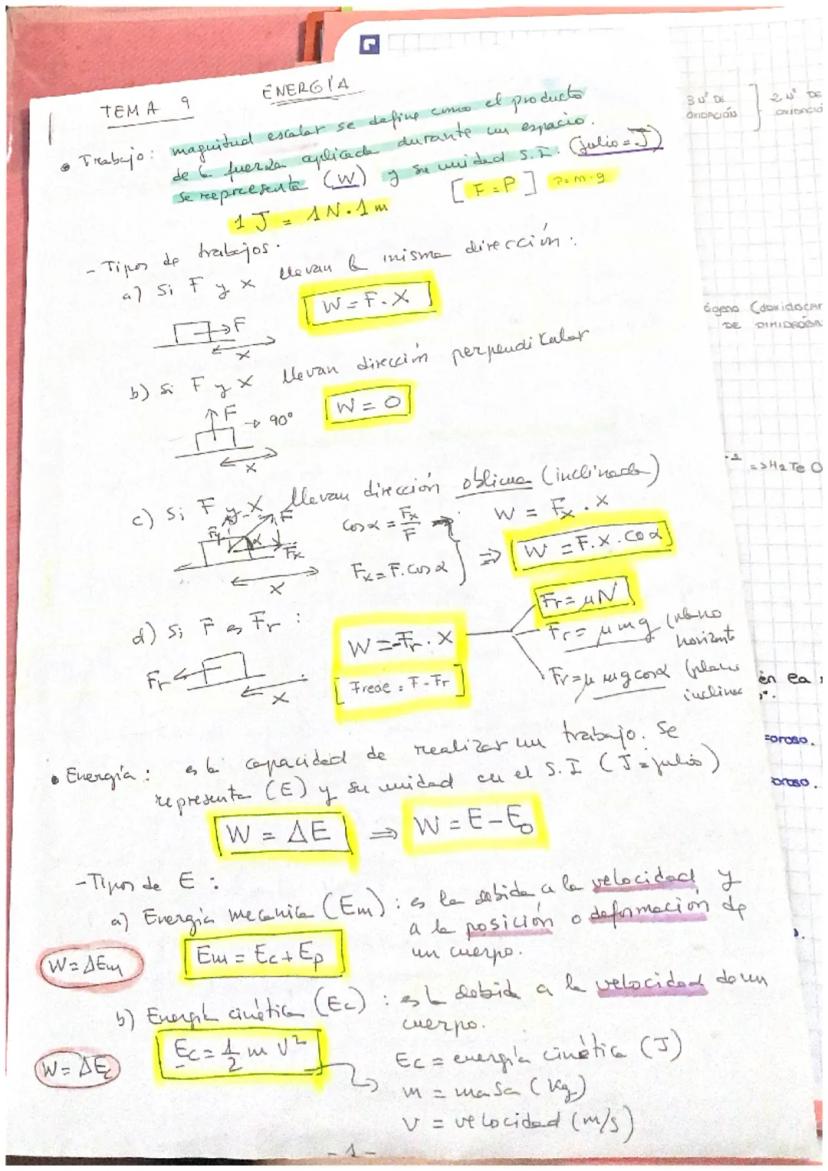 TEMA 9 ENERGÍA
• Trabajo: magnitud escalar se define como el producto
de la fuerza aplicada durante un espacio.
se representa (W) y su unidad S.I. (julio = J)
1 J = 1N·1m [F = P] P=m·g
- Tipos de trabajos.
a) Si F y x llevan la misma dirección:
W = F·X
F
x
b) Si F y x llevan dirección perpendicular
W = 0
F → 90°
x
c) Si F y X llevan dirección oblicua (inclinada)
cos α = Fx/F ⇒ W = Fx · x
Fx = F·cos α ⇒ W = F·X·cos α
F
Fy
α
Fx
X
d) Si F es Fr:
W = -Fr · X
Fr = μN
Fr = μmg (plano
horizont
Fr = μ mg cos α (plano
inclinad
Fr
X
[Freoe = F - Fr]
• Energía: es la capacidad de realizar un trabajo. Se
representa (E) y su unidad en el S.I (J = julio)
W = ΔE ⇒ W = E - E₀
- Tipos de E:
a) Energía mecánica (Em): es la debida a la velocidad y
a la posición o deformación de
un cuerpo.
W = ΔEm
Em = Ec + Ep
b) Energía cinética (Ec): es la debida a la velocidad de un
cuerpo.
W = ΔEc
Ec = 1/2 m v²
Ec = energía cinética (J)
m = masa (kg)
v = velocidad (m/s)
- 1 -
3 Nº DE
OXIDACIÓN
2 Nº DE
DE DIHIDRÓGEN
=> H2TeO
én ea
oroso.
oroso.